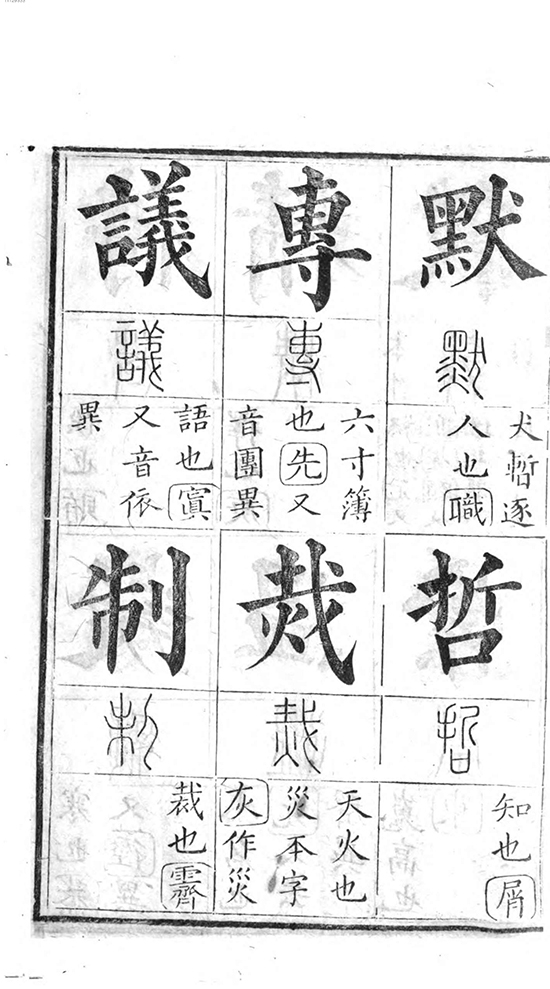 默
默
犬暫逐
人也職
專
專
六寸簿
也先又
音團異
議
議
語也寘
又音依
異
哲
哲
知也屑
烖
烖
天火也
災本字
灰作災
制
制
裁也霽